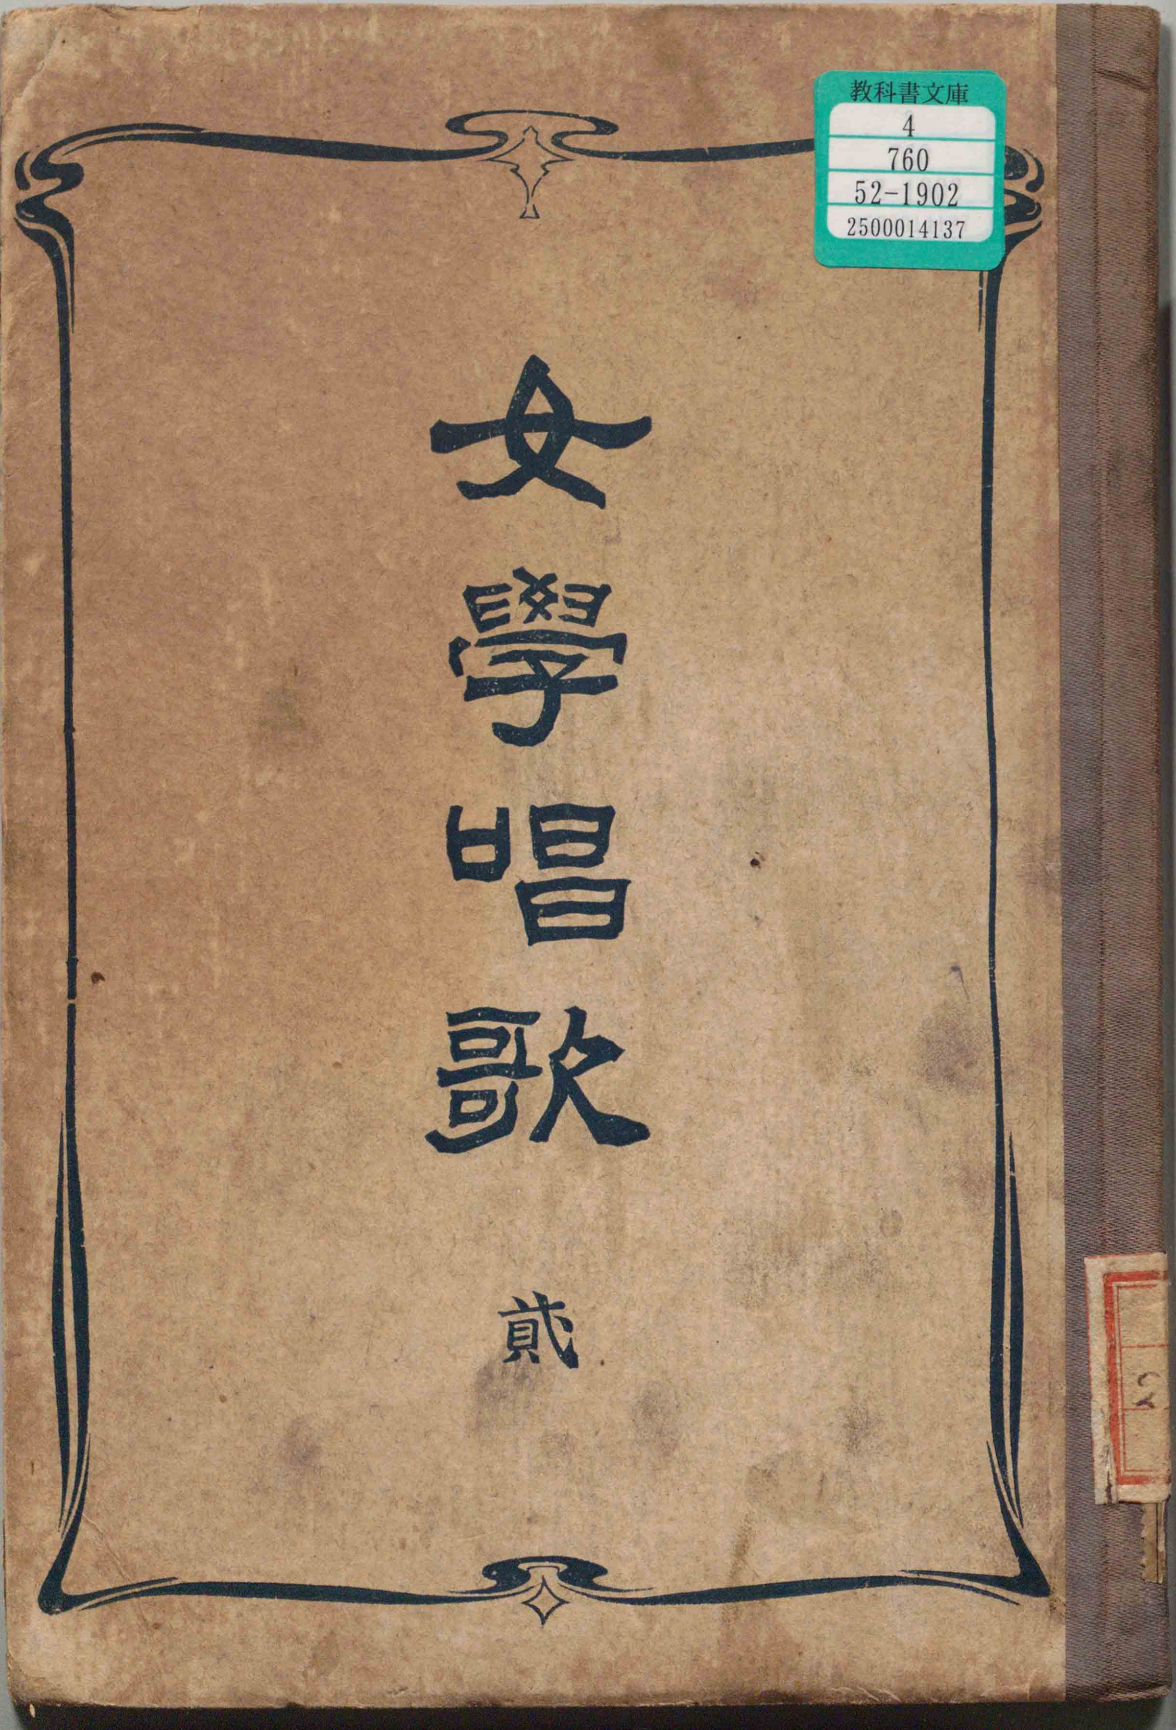 教科書文庫
4
760
52-1902
2500014137
女學唱歌
貳